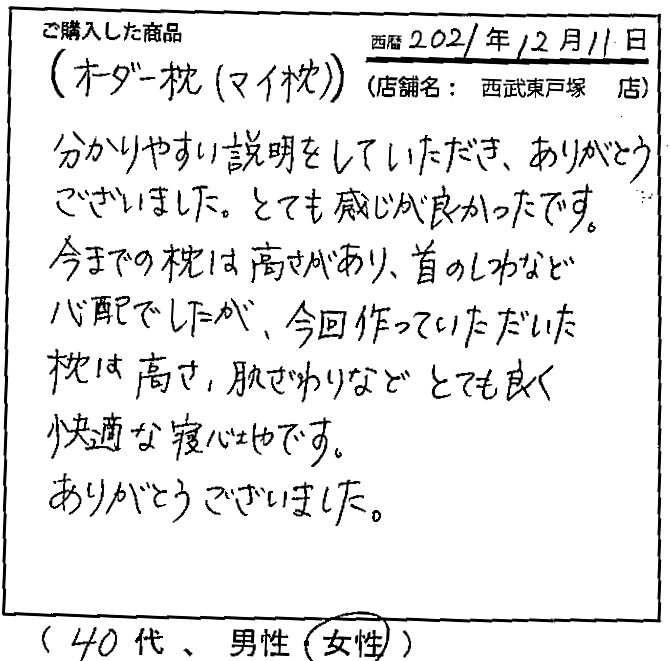 ご購入した商品
西暦 2021年12月11日
(オーダー枕(マイ枕))
(店舗名: 西武東戸塚 店)
分かりやすい説明をしていただき、ありがとう
ございました。とても感じが良かったです。
今までの枕は高さがあり、首のしわなど
心配でしたが、今回作っていただいた
枕は高さ,肌ざわりなどとても良く
快適な寝心地です。
ありがとうございました。
(40代、男性・女性)